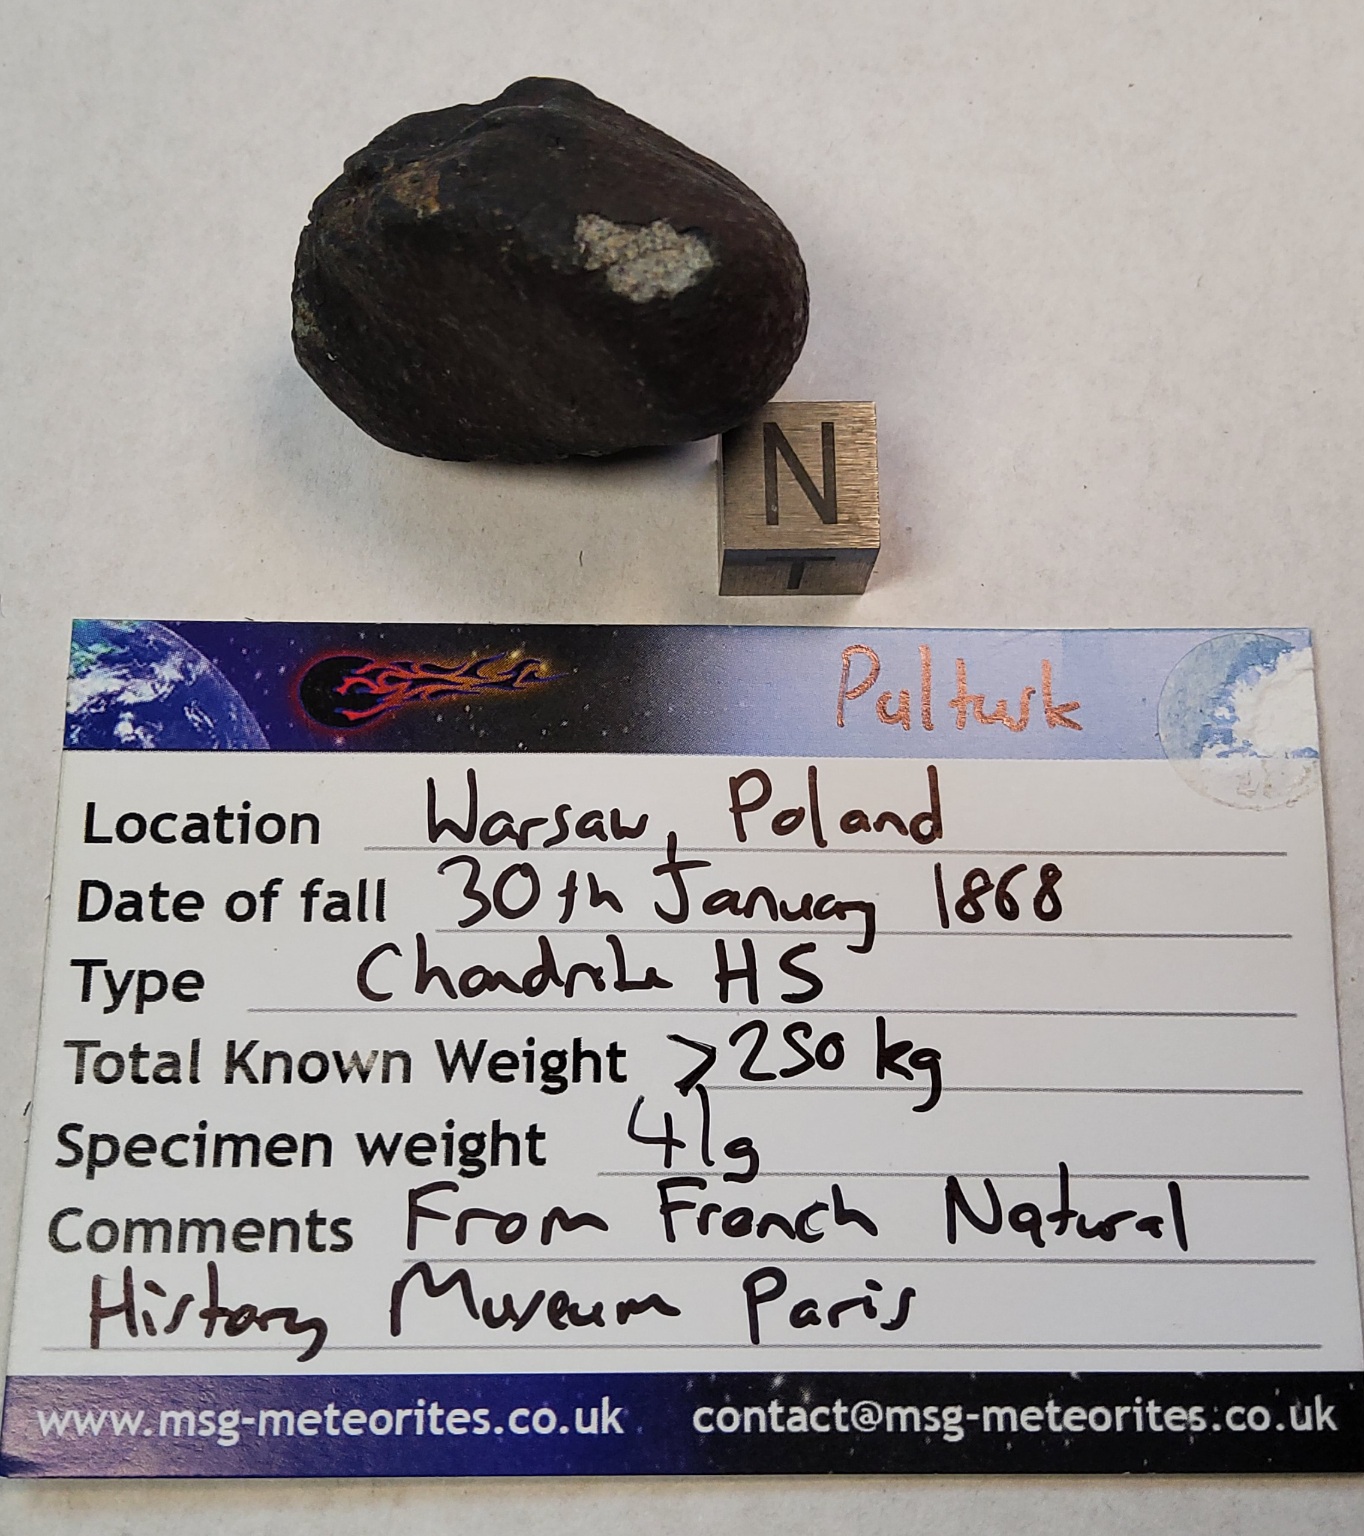 N
T
Pultusk
Location Warsaw, Poland
Date of fall 30th January 1868
Type Chondrite H5
Total Known Weight >250 kg
Specimen weight 41g
Comments From French Natural
History Museum Paris
www.msg-meteorites.co.uk contact@msg-meteorites.co.uk